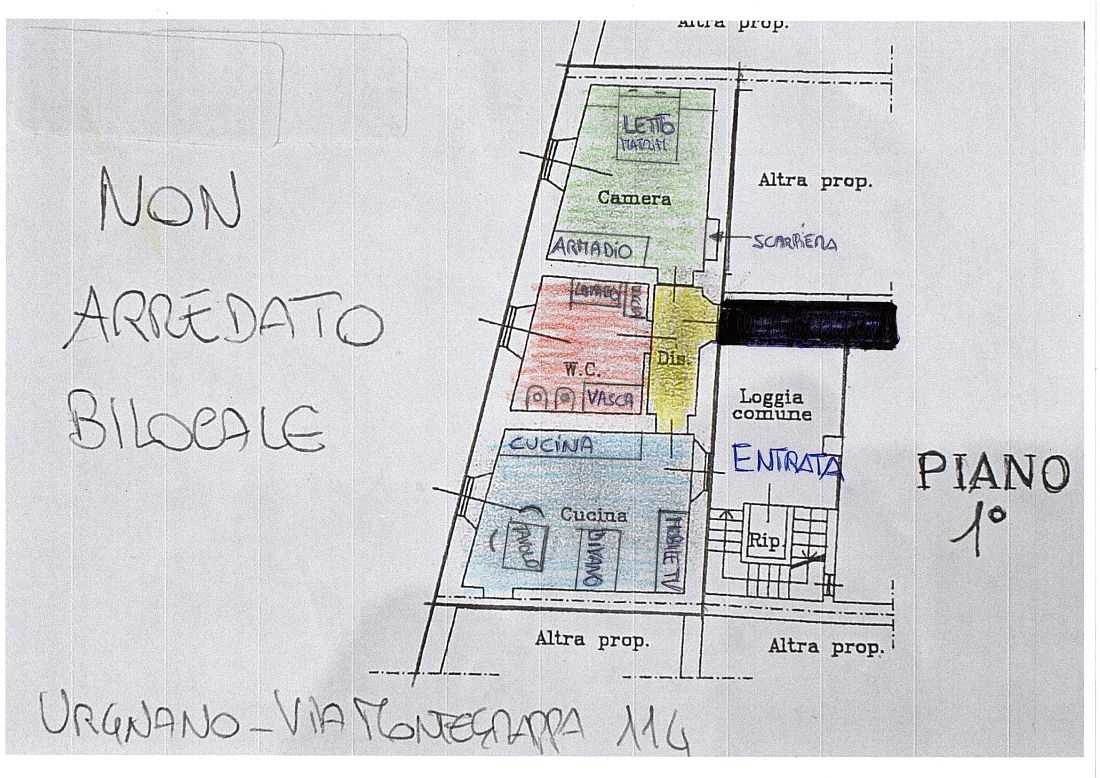 Altra prop.
NON
ARREDATO
BILOCALE
LETTO
MATRIM
Camera
ARMADIO
Altra prop.
SCARPIERA
LAVABO
W.C.
VASCA
Dis.
Loggia
comune
ENTRATA
CUCINA
Cucina
TAVOLO
DIVANO
MOBILE TV
Rip.
PIANO
1°
Altra prop.
Altra prop.
URGNANO - VIA MONTEGRAPPA 114